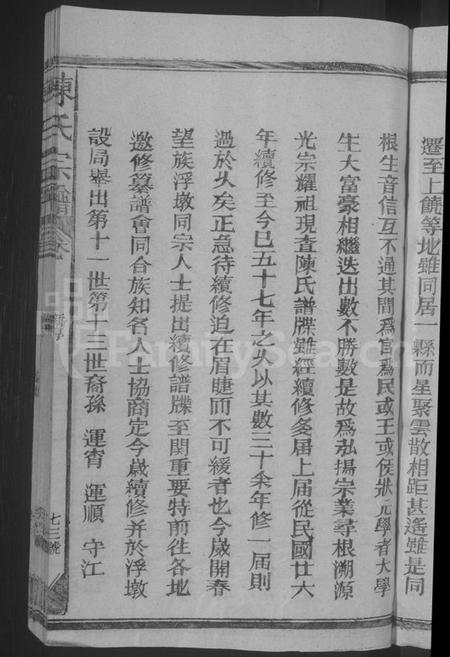 遷至上饒等地雖同居一縣而星聚雲散相距甚遙雖是同
根生音信互不通其間為官為民或王或侯狀元學者大學
生大富豪相繼迭出數不勝數是故為弘揚宗業尋根溯源
光宗耀祖現查陳氏譜牒雖經續修多屆上届從民國廿六
年續修至今已五十七年之久以其數三十余年修一届則
過於久矣正急待續修迫在眉睫而不可緩者也今歲開春
望族浮墩同宗人士提出續修譜牒至関重要特前往各地
邀修纂譜會同合族知名人士協商定今歲續修并於浮墩
設局舉出第十一世第十二世裔孫 運宵 運順 守江
陳氏宗譜
七三號
FamilySearch